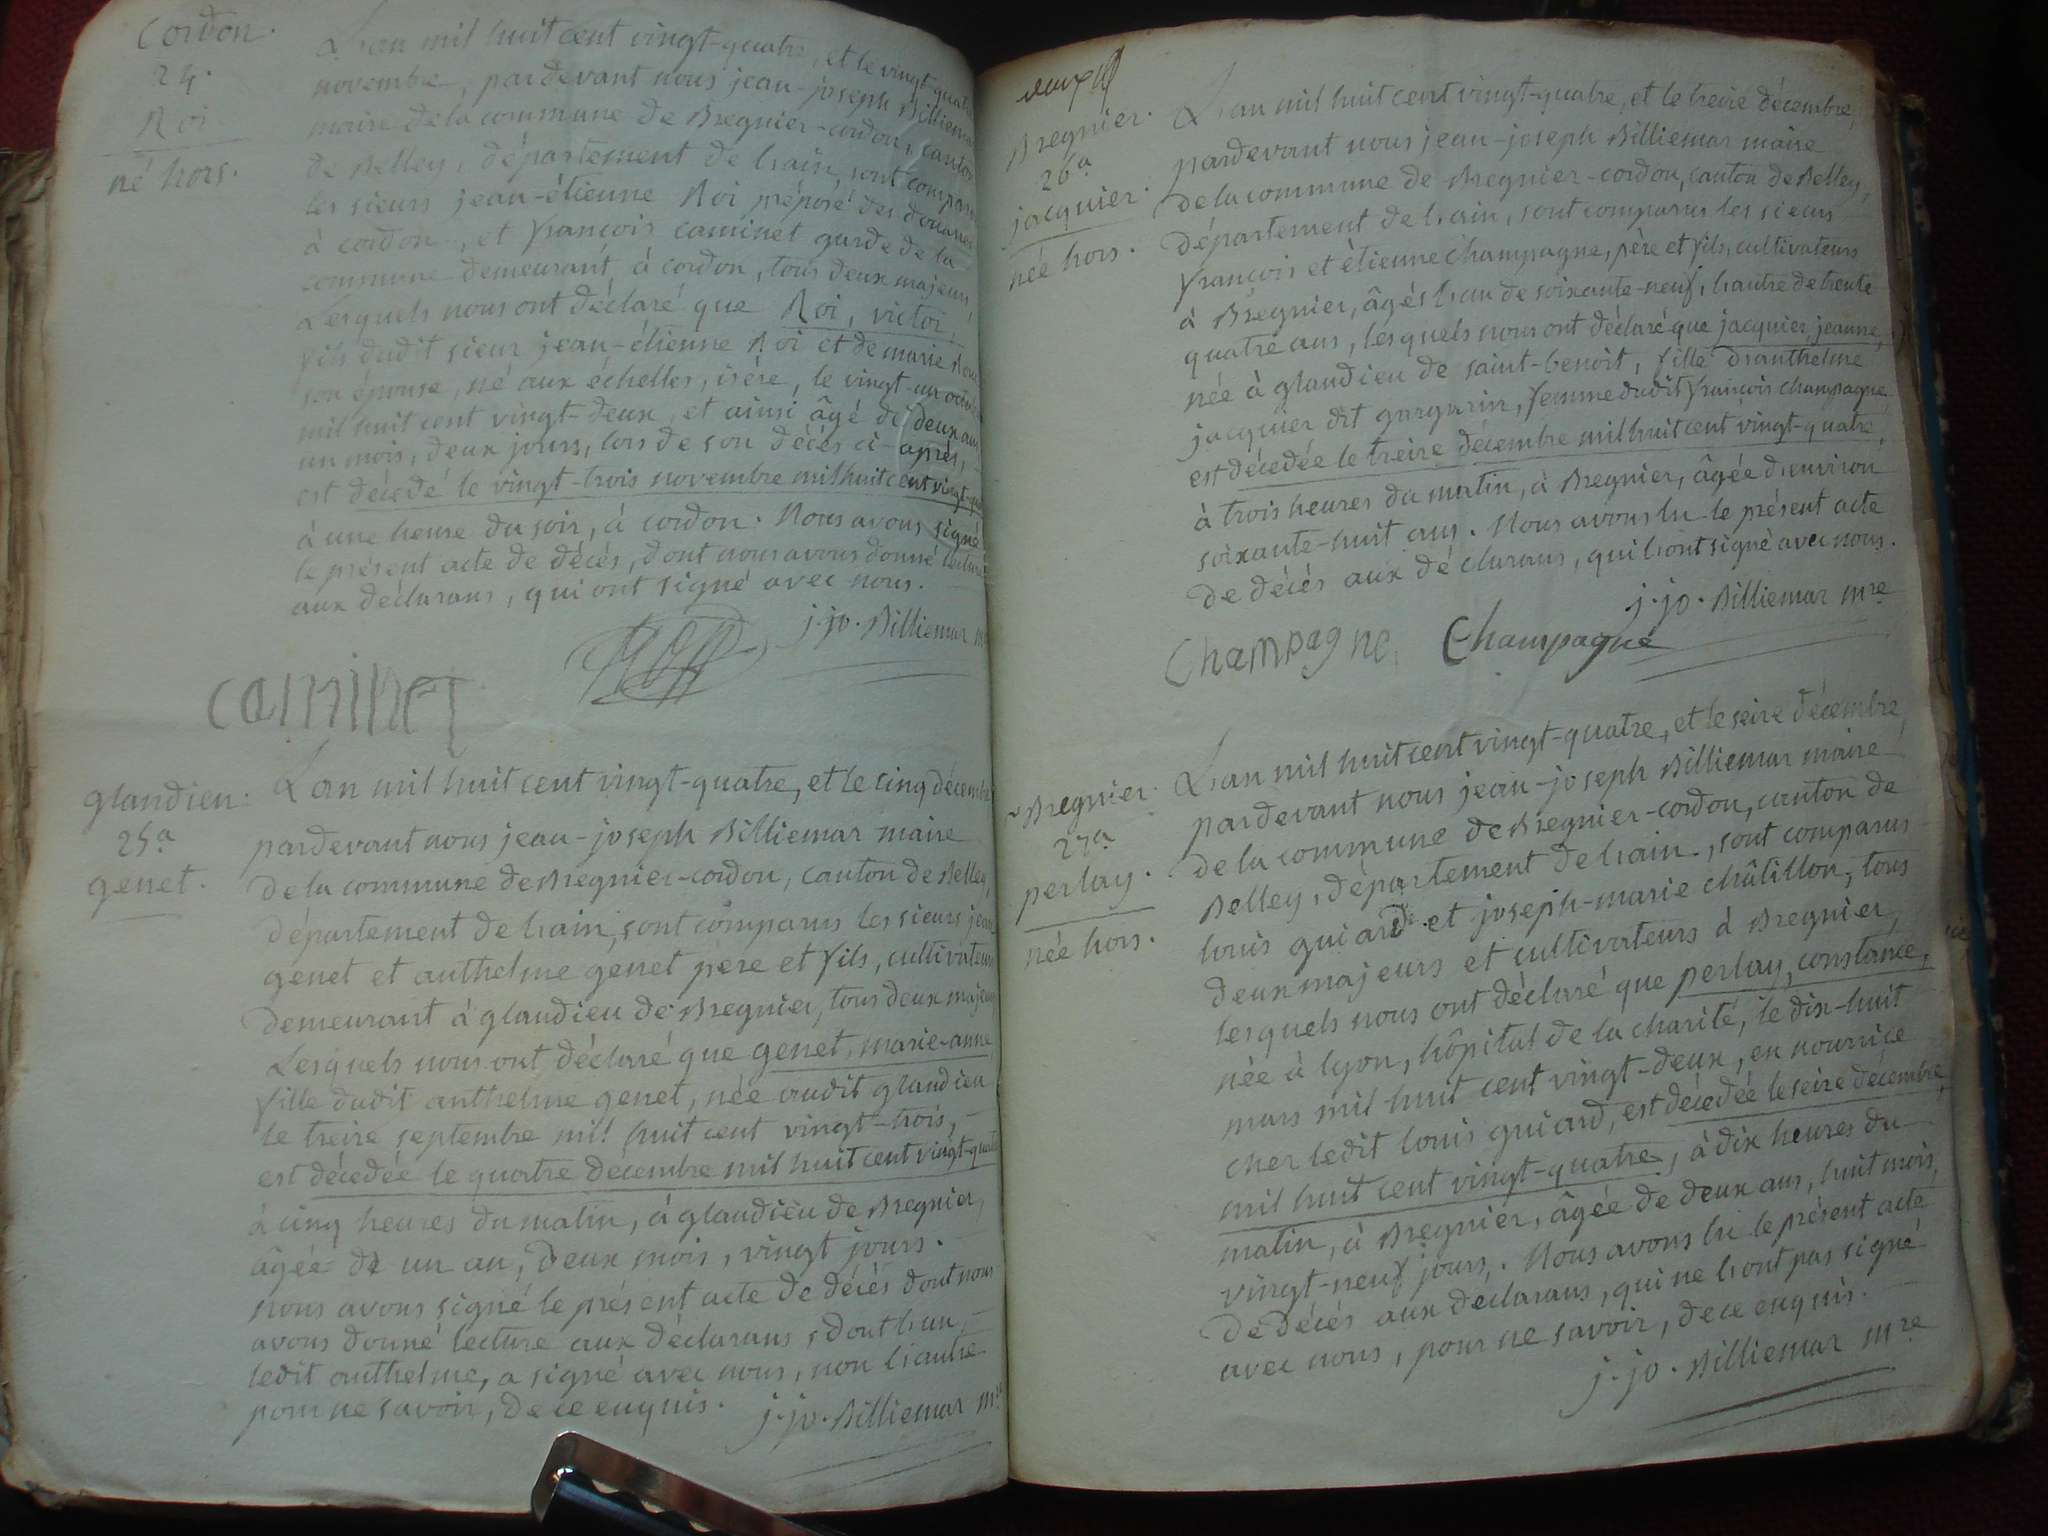 Cordon.
24.
Roi
né hors.
L'an mil huit cent vingt-quatre, et le vingt-quatre
novembre, pardevant nous jean-joseph Billiemar
maire de la commune de Bregnier-cordon, canton
de Belley, département de l'ain, sont comparus
les sieurs jean-étienne Roi préposé des douanes
à cordon, et françois caminet garde de la
commune demeurant à cordon, tous deux majeurs,
Lesquels nous ont déclaré que Roi, victor,
fils dudit sieur jean-étienne Roi et de marie
son épouse, né aux échelles, isère, le vingt-un octobre
mil huit cent vingt-deux, et ainsi âgé de deux ans
un mois, deux jours, lors de son décès ci-après,
est décedé le vingt-trois novembre mil huit cent vingt-quatre
à une heure du soir, à cordon. Nous avons signé
le présent acte de décès, dont nous avons donné lecture
aux déclarans, qui ont signé avec nous.
j. jo. Billiemar mre
caminet
Roi
glandieu.
25.a
genet.
L'an mil huit cent vingt-quatre, et le cinq décembre
pardevant nous jean-joseph Billiemar maire
de la commune de Bregnier-cordon, canton de Belley,
département de l'ain, sont comparus les sieurs jean
genet et anthelme genet père et fils, cultivateurs
demeurant à glandieu de Bregnier, tous deux majeurs
Lesquels nous ont déclaré que genet, marie-anne,
fille dudit anthelme genet, née audit glandieu
le treize septembre mil huit cent vingt-trois,
est décedée le quatre décembre mil huit cent vingt-quatre
à cinq heures du matin, à glandieu de Bregnier,
âgée de un an, deux mois, vingt jours.
nous avons signé le présent acte de décès dont nous
avons donné lecture aux déclarans, dont l'un,
ledit anthelme, a signé avec nous, non l'autre
pour ne savoir, de ce enquis.
j. jo. Billiemar mre
Bregnier.
26.a
jacquier.
née hors.
L'an mil huit cent vingt-quatre, et le treize décembre,
pardevant nous jean-joseph Billiemar maire
de la commune de Bregnier-cordon, canton de Belley,
département de l'ain, sont comparus les sieurs
françois et étienne champagne, père et fils, cultivateurs
à Bregnier, âgés l'un de soixante-neuf, l'autre de trente
quatre ans, lesquels nous ont déclaré que jacquier, jeanne,
née à glandieu de saint-benoit, fille d'anthelme
jacquier dit gargarin, femme dudit françois champagne
est décedée le treize décembre mil huit cent vingt-quatre,
à trois heures du matin, à Bregnier, âgée d'environ
soixante-huit ans. Nous avons lu le présent acte
de décès aux déclarans, qui l'ont signé avec nous.
j. jo. Billiemar mre
Champagne Champagne
Bregnier.
27.a
perlay.
née hors.
L'an mil huit cent vingt-quatre, et le seize décembre,
pardevant nous jean-joseph Billiemar maire
de la commune de Bregnier-cordon, canton de
Belley, département de l'ain, sont comparus
louis guiard et joseph-marie châtillon, tous
deux majeurs et cultivateurs à Bregnier,
lesquels nous ont déclaré que perlay, constance,
née à lyon, hôpital de la charité, le dix-huit
mars mil huit cent vingt-deux, en nourrice
chez ledit louis guiard, est décedée le seize décembre
mil huit cent vingt-quatre, à dix heures du
matin, à Bregnier, âgée de deux ans, huit mois,
vingt-neuf jours. Nous avons lu le présent acte
de décès aux déclarans, qui ne l'ont pas signé
avec nous, pour ne savoir, de ce enquis.
j. jo. Billiemar mre